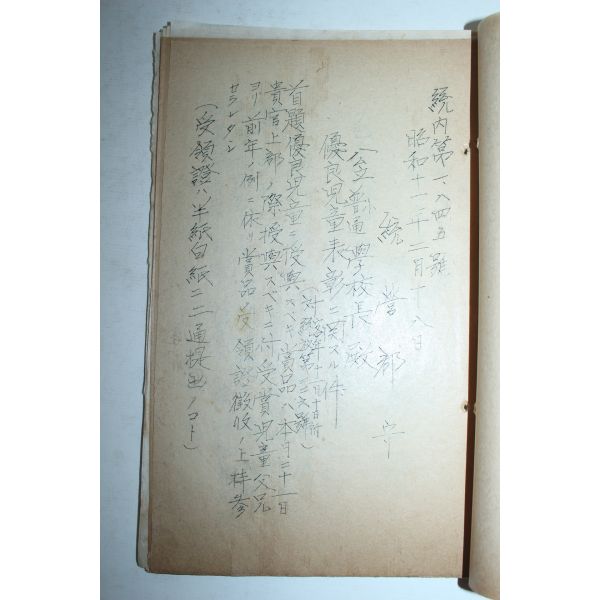 統内第一、八四五號
昭和十一年二月十八日
統營郡守
公立普通學校長殿
優良児童表彰ニ関スル件
首題優良児童ニ授與スベキ賞品ハ本月二十一日
貴官上郡ノ際授與スベキニ付受賞児童父兄
ヨリ前年ノ例ニ依リ賞品受領證徴收ノ上持参
セラレタシ
(受領證ハ半紙白紙ニ二通提出ノコト)